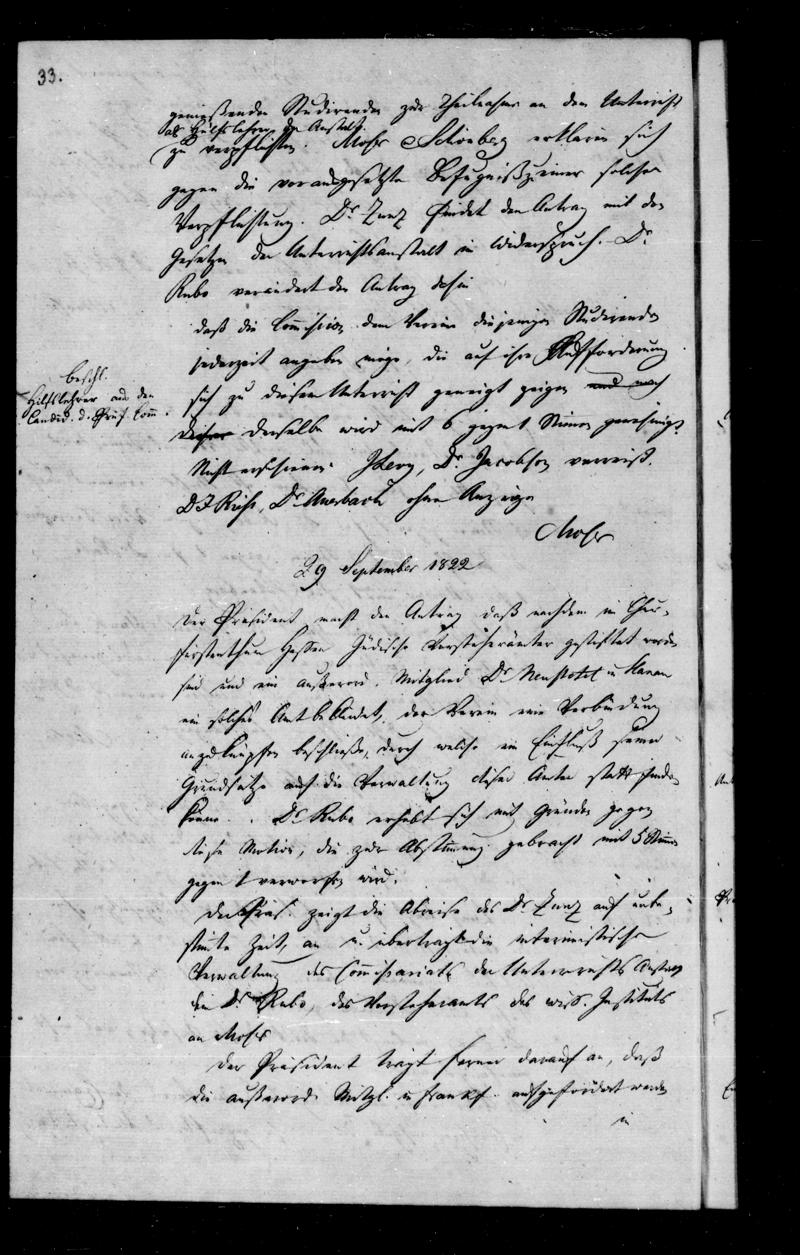 33.
genießenden Studirenden zur Theilnahme an dem Unterricht
als Hülfslehrer der Anstalt
zu verpflichten. Moser Schönberg erklären sich
gegen die vorausgesetzte Befugniß zu einer solchen
Verpflichtung. Dr Zunz findet den Antrag mit den
Gesetzen der Unterrichtsanstalt in Widerspruch. Dr
Rubo verändert den Antrag dahin
daß die Commission dem Verein diejenigen Studirenden
jederzeit angeben möge, die auf ihre Aufforderung
beschl.
Hilfslehrer aus den
Candid. d. Prüf. Comm.
sich zu diesem Unterricht geneigt zeigen und nach
derselbe wird mit 6 gegen 1 Stimme genehmigt.
Nicht erschienen: J Levy, Dr Jacobson verreist.
D J Ruhs, Dr Auerbach ohne Anzeige
Moser
29 September 1822
Der Präsident macht den Antrag daß nachdem in Chur-
fürstenthum Hessen Jüdische Vorsteherämter gestiftet worden
sind und ein außerord. Mitglied Dr Neustadtl in Hanau
ein solches Amt bekleidet, der Verein eine Verbindung
anzuknüpfen beschließe, durch welche ein Einfluß seiner
Grundsätze auf die Verwaltung dieser Ämter statt finden
könne. Dr Rubo erhebt sich mit Gründen gegen
diese Motion, die zur Abstimmung gebracht mit 5 Stimmen
gegen 1 verworfen wird.
Der Präs. zeigt die Abreise des Dr Zunz auf unbe-
stimmte Zeit, an u. überträgt die interimistische
Verwaltung des Commissariats der Unterrichts Anstalt
dem Dr Rubo, des Vorsteheramts des wiss. Instituts
an Moser
Der Präsident trägt ferner darauf an, daß
die außerord. Mitgl. in Frankf. aufgefordert werden
in